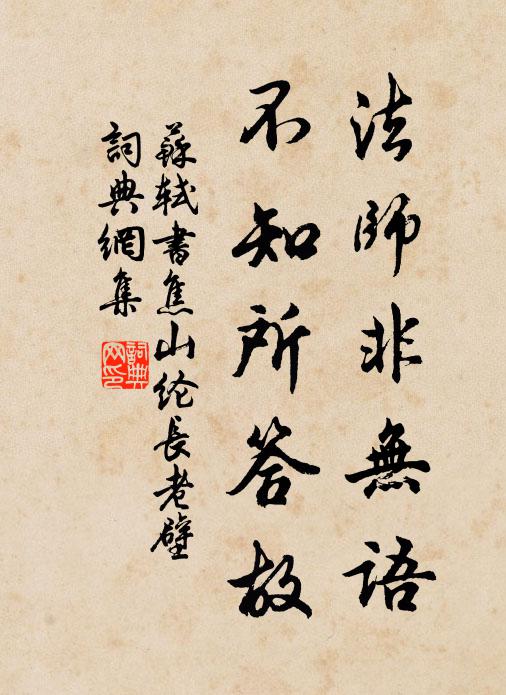 法師非無語
不知所答故
蘇軾書焦山纶長老壁
詞典網集
詞典
网印